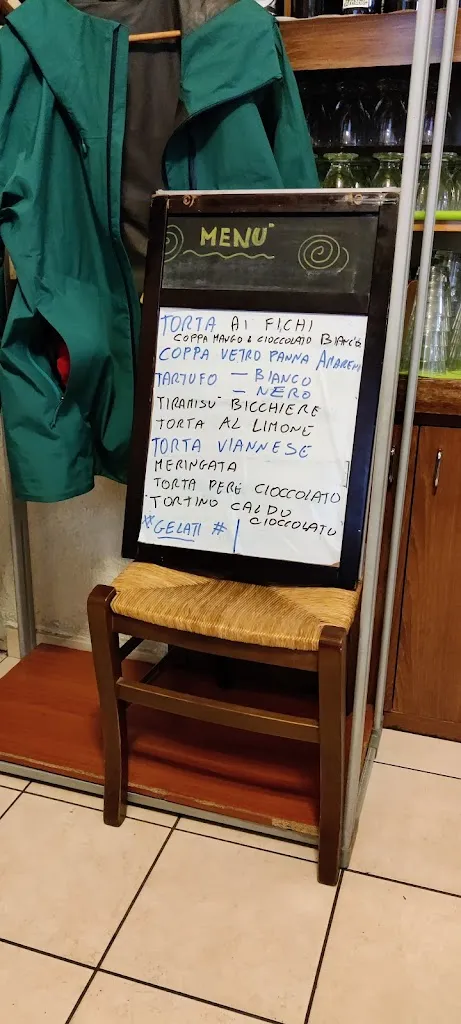 MENU'
TORTA AI FICHI
COPPA MANGO & CIOCCOLATO BIANCO
COPPA VETRO PANNA AMARENA
TARTUFO — BIANCO
— NERO
TIRAMISU' BICCHIERE
TORTA AL LIMONE
TORTA VIANNESE
MERINGATA
TORTA PERE CIOCCOLATO
TORTINO CALDO
CIOCCOLATO
*GELATI #